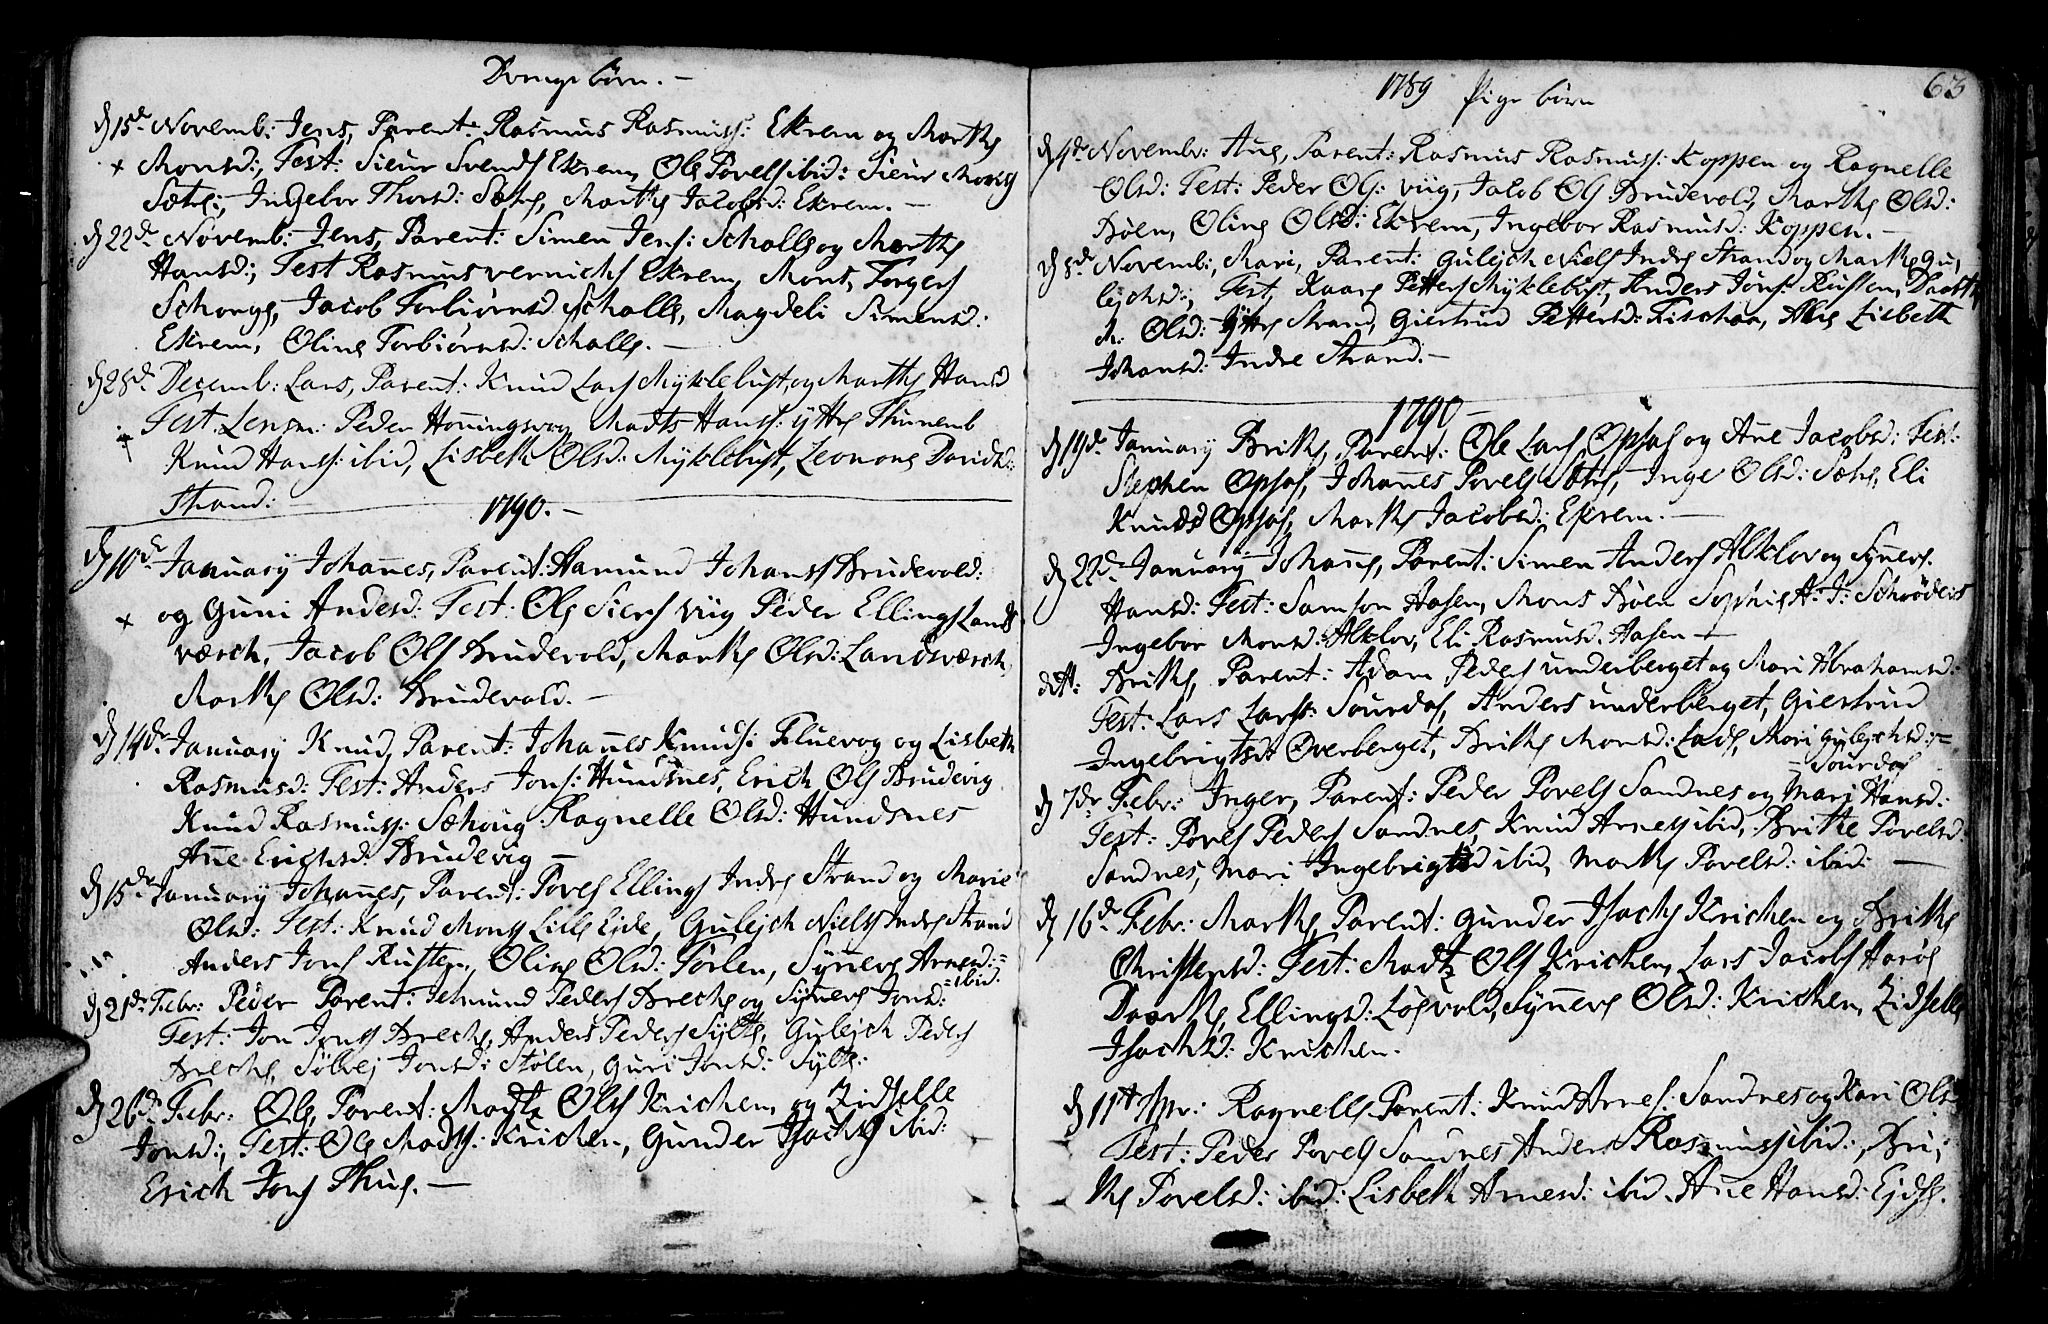 Drenge børn. –
d 15de Novemb: Jens, Parent: Rasmus Rasmuss: Ekrem og Marthe
+ Monsd:, Test: Sieur Svends Ekrem, Ole Povels ibid: Sieur Mons
Sætre, Ingebor Thorsd: Sætre, Marthe Jacobsd: Ekrem. –
d 22de Novemb: Jens, Parent: Simen Jens: Schalle og Marthe
Hansd:, Test Rasmus vernichs Ekrem, Mons Torgers
Schonge, Jacob Torbiørnsd Schalle, Magdeli Simensd:
Ekrem, Oline Torbiørnsd: Schalle. –
d 28de Decemb: Lars, Parent: Knud Lars Myklebust, og Marthe Hansd
Test: Lensm: Peder Honingsvog Madts Hanss: ÿttre Thinneml
Knud Hanss: ibid, Lisbeth Olsd: Myklebust, Leonone Davidsd:
Strand: –
1790. –
d 10de January Johannes, Parent: Hamund Johans Brudevold:
+ og Guni Andersd: Test: Ole Siers Viig Peder Ellings Lands
værch, Jacob Ols Brudevold, Marthe Olsd: Landsværch,
Marthe Olsd: Brudevold. –
d 14de January Knud, Parent: Johannes Knuds: Fluevog og Lisbeth
Rasmusd: Test: Anders Jons: Hundsnes, Erich Ols Brudevig
Knud Rasmuss: Sæhoug Ragnelle Olsd: Hundsnes
Ane Erichsd: Brudevig –
d 15de January Johannes, Parent: Povel Ellings Indre Strand og Marie
Olsd: Test: Knud Mons Lille Ejde, Gulejch Niels Indre Strand
Anders Jons Rusten, Oline Olsd: Forlen, Synneve Arnesd: =
= ibid.
d 21de Febr: Peder Parent: Jetmund Peders Breche og Synneve Jonsd:
Test: Jon Jons Breche, Anders Peders Sylte, Gulejch Peders
Breche, Sølvej Jonsd: Stølen, Guri Jonsd: Sylte:
d 26de Febr: Ole, Parent: Madtz Ols Krichen, og Zidselle
Jonsd:, Test: Ole Madts: Krichen, Gunder Isachs ibid:
Erich Jons Thue. –
1789 Pige børn
63
d 4de Novembr: Ane, Parent: Rasmus Rasmuss: Koppen og Ragnelle
Olsd: Test: Peder Ols: Viig, Jacob Ols Brudevold, Marthe Olsd:
Bøen, Oline Olsd: Ekrem, Ingebor Rasmusd: Koppen. –
d 8de Novemb:, Mari, Parent: Gulejch Niels Indre Strand og Marthe Gu,
lejchsd:, Test, Kaare Petters Myklebust, Anders Jons: Rusten, Dorthe
M: Olsd: Ÿttre Strand, Giertrud Pettersd: Fischaa, Ane Lisbeth
Johansd: Indre Strand. –
1790 –
d 19de January Brithe, Parent: Ole Lars Opsal og Ane Jacobsd: Test:
Stephen Opsal, Johannes Povels Sætre, Inge Olsd: Sætre, Eli
Knudsd Opsal, Marthe Jacobsd: Ekrem. –
d 22de January Johane, Parent: Simen Anders Alklov og Synneve
Hansd: Test: Samson Aasen, Mons Bøen Sophie A: J: Schrøders
Ingebor Monsd: Alklov, Eli Rasmusd: Aasen –
ditt: Brithe, Parent: Adam Peders underberget og Mari Abrahamsd:
Test: Lars Larss: Sourdal, Anders underberget, Giertrud
Ingebrigtsd Overberget, Brithe Monsd: Lade, Mari Gulejchsd: =
= Sourdal
d 7de Febr: Inger, Parent: Peder Povels Sandnes og Mari Hansd:
Test: Povel Peders Sandnes, Knud Arnes ibid, Brithe Povelsd:
Sandnes, Mari Ingebrigtsd ibid, Marthe Povelsd: ibid: –
d 16de Febr: Marthe, Parent: Gunder Isachs Krichen og Brithe
Christensd: Test: Madtz Ols Krichen, Lars Jacobs Harøe
Dorthe Ellingsd: Løsvold, Synneve Olsd: Krichen, Zidselle
Isachsd: Krichen.
d 11te Apr: Ragnelle, Parent: Knud Arnes: Sandnes og Kari Olsd
Test: Peder Povels Sandnes Anders Rasmuss ibid:, Bri,
the Povelsd: ibid: Lisbeth Arnesd: ibid, Ane Hansd: Ejde.